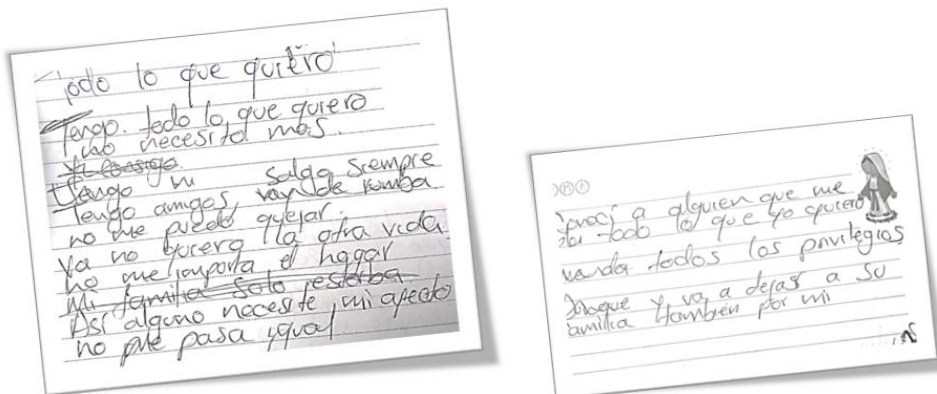 Todo lo que quiero
Tengo todo lo que quiero
no necesito más.
Tengo salgo siempre
Tengo amigos, voy de rumba
no me puedo quejar.
Ya no quiero la otra vida
no me importa el hogar
Mi familia solo estorba
Así alguno necesite mi afecto
no me pasa igual
conocí a alguien que me
da todo lo que yo quiero
todos los privilegios
y va a dejar a su
familia también por mi